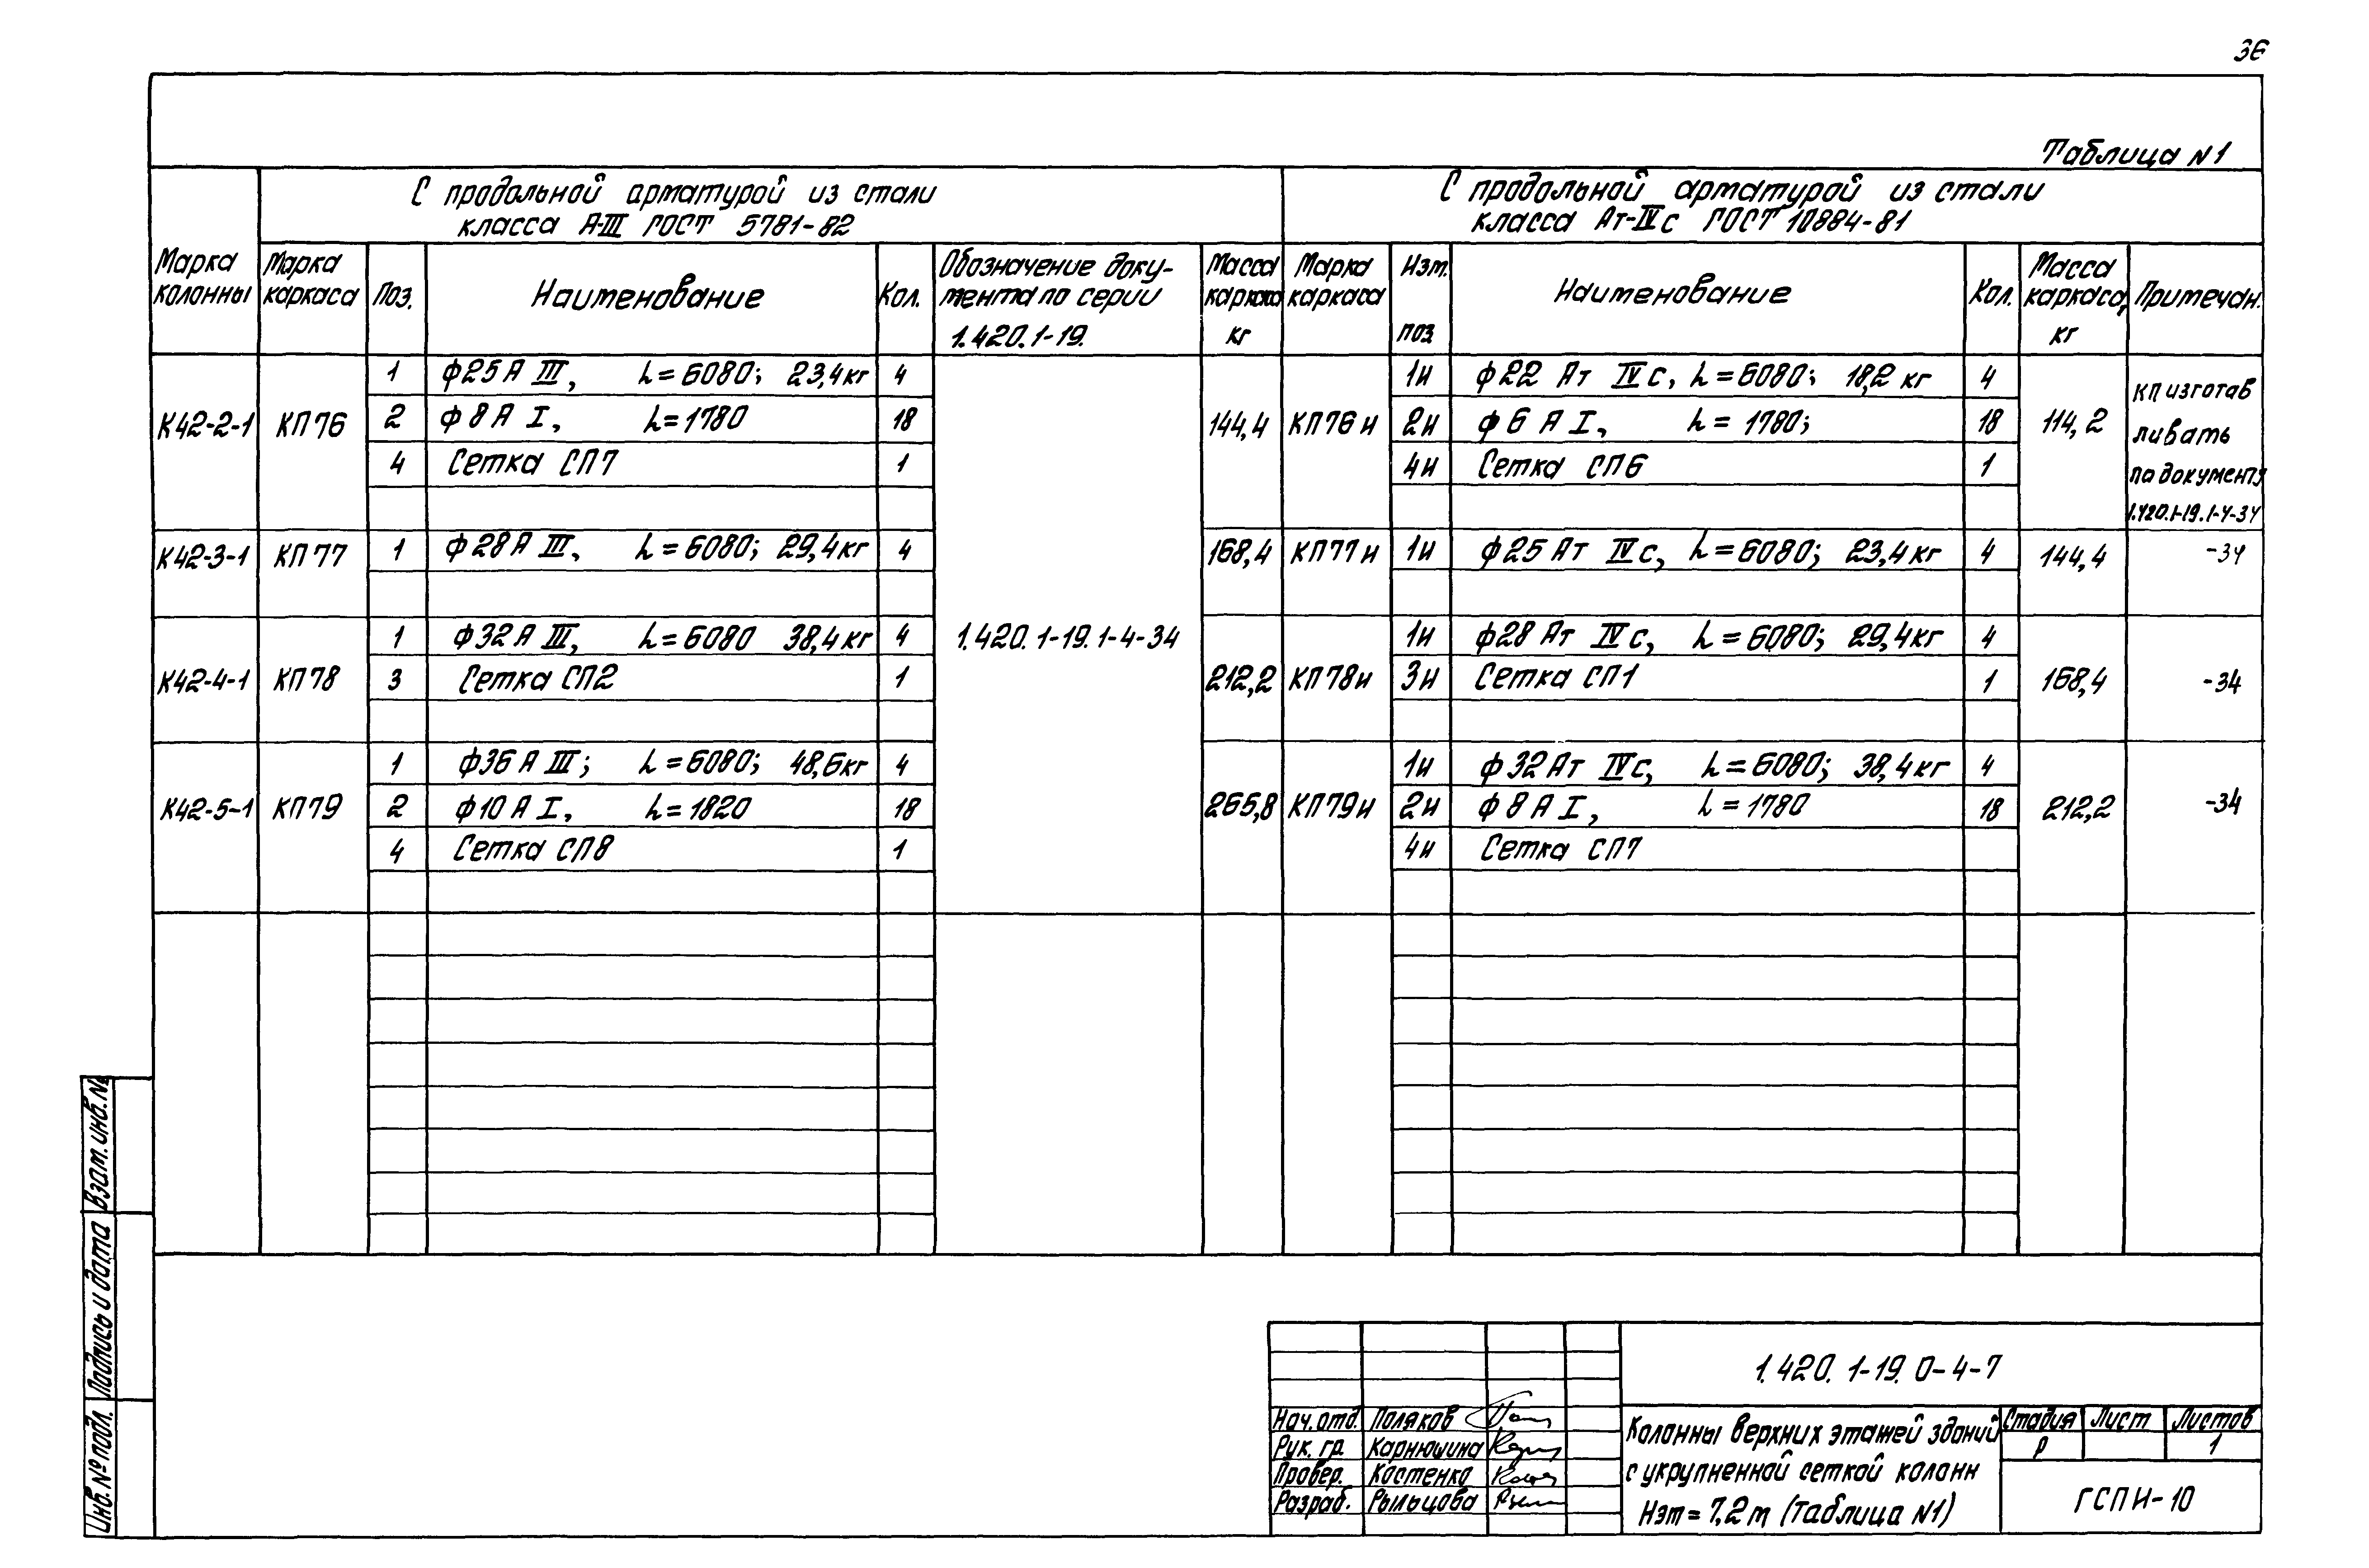 36
Таблица N1
С продольной арматурой из стали
класса А-III ГОСТ 5781-82
С продольной арматурой из стали
класса Ат-IVс ГОСТ 10884-81
Марка колонны
Марка каркаса
Поз.
Наименование
Кол.
Обозначение доку-
мента по серии
1.420.1-19.
Масса каркаса кг
Марка каркаса
Изм. поз
Наименование
Кол.
Масса каркаса, кг
Примечан.
К42-2-1 КП76 1 ф25 А III, L=6080; 23,4кг 4 144,4 КП76и 1и ф22 Ат IVс, L=6080; 18,2 кг 4 114,2
2 ф8 А I, L=1780 18 2и ф6 А I, L=1780; 18
4 Сетка СП7 1 4и Сетка СП6 1
КП изготав
ливать
по документу
1.420.1-19.1-4-34
К42-3-1 КП77 1 ф28 А III, L=6080; 29,4кг 4 168,4 КП77и 1и ф25 Ат IVс, L=6080; 23,4кг 4 144,4 -34
К42-4-1 КП78 1 ф32 А III, L=6080 38,4кг 4 1.420.1-19.1-4-34 212,2 КП78и 1и ф28 Ат IVс, L=6080; 29,4кг 4 168,4 -34
3 Сетка СП2 1 3и Сетка СП1 1
К42-5-1 КП79 1 ф36 А III; L=6080; 48,6кг 4 265,8 КП79и 1и ф32 Ат IVс, L=6080; 38,4кг 4 212,2 -34
2 ф10 А I, L=1820 18 2и ф8 А I, L=1780 18
4 Сетка СП8 1 4и Сетка СП7
Взам. инв. №
Подпись и дата
Инв. № подл.
1.420.1-19.0-4-7
Нач. отд. Поляков
Рук. гр. Карнюшина
Провер. Костенко
Разраб. Рыльцова
Колонны верхних этажей зданий
с укрупненной сеткой колонн
Нэт=7,2м (таблица N1)
Стадия Лист Листов
Р 1
ГСПИ-10